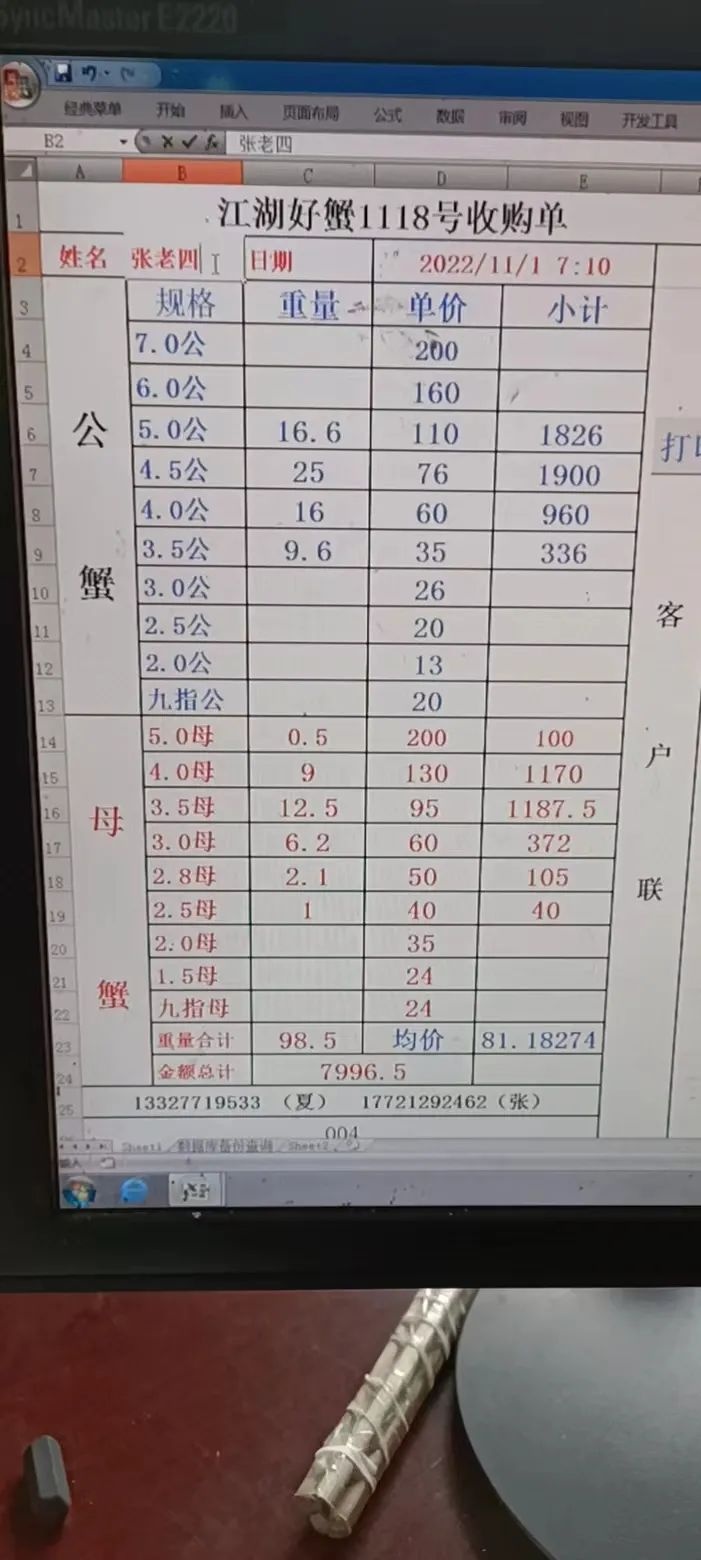 SyncMaster E2220
经典菜单 开始 插入 页面布局 公式 数据 审阅 视图 开发工具
B2 fx 张老四
A B C D E
1 江湖好蟹1118号收购单
2 姓名 张老四 日期 2022/11/1 7:10
3 规格 重量 单价 小计
4 7.0公 200
5 6.0公 160
6 公 5.0公 16.6 110 1826 打
7 4.5公 25 76 1900
8 4.0公 16 60 960
9 蟹 3.5公 9.6 35 336
10 3.0公 26 客
11 2.5公 20
12 2.0公 13
13 九指公 20
14 5.0母 0.5 200 100 户
15 4.0母 9 130 1170
16 母 3.5母 12.5 95 1187.5
17 3.0母 6.2 60 372
18 2.8母 2.1 50 105 联
19 2.5母 1 40 40
20 2.0母 35
21 蟹 1.5母 24
22 九指母 24
23 重量合计 98.5 均价 81.18274
24 金额总计 7996.5
25 13327719533 （夏） 17721292462（张）
004
Sheet1 数据库备份查询 Sheet2
输入